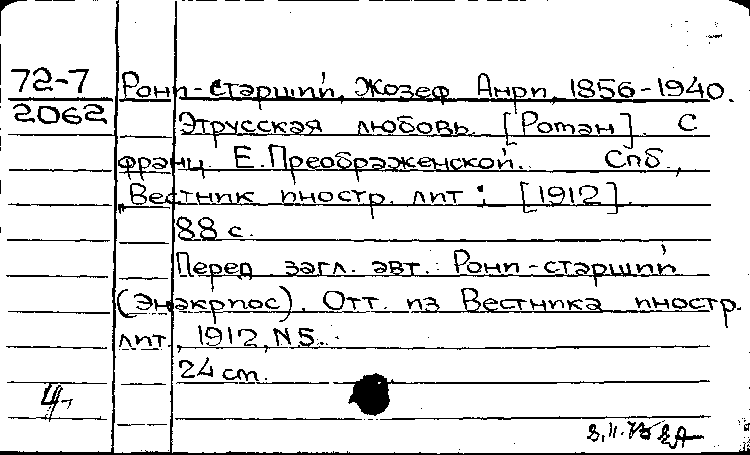 72-7 Рони-старший, Жозеф Анри, 1856-1940.
2062 Этрусская любовь. [Роман]. С
франц. Е.Преображенской. Спб.,
„Вестник иностр. лит": [1912].
88 с.
Перед загл. авт.: Рони-старший
(Энакриос). Отт. из Вестника иностр.
лит., 1912, N5.
24 cm.